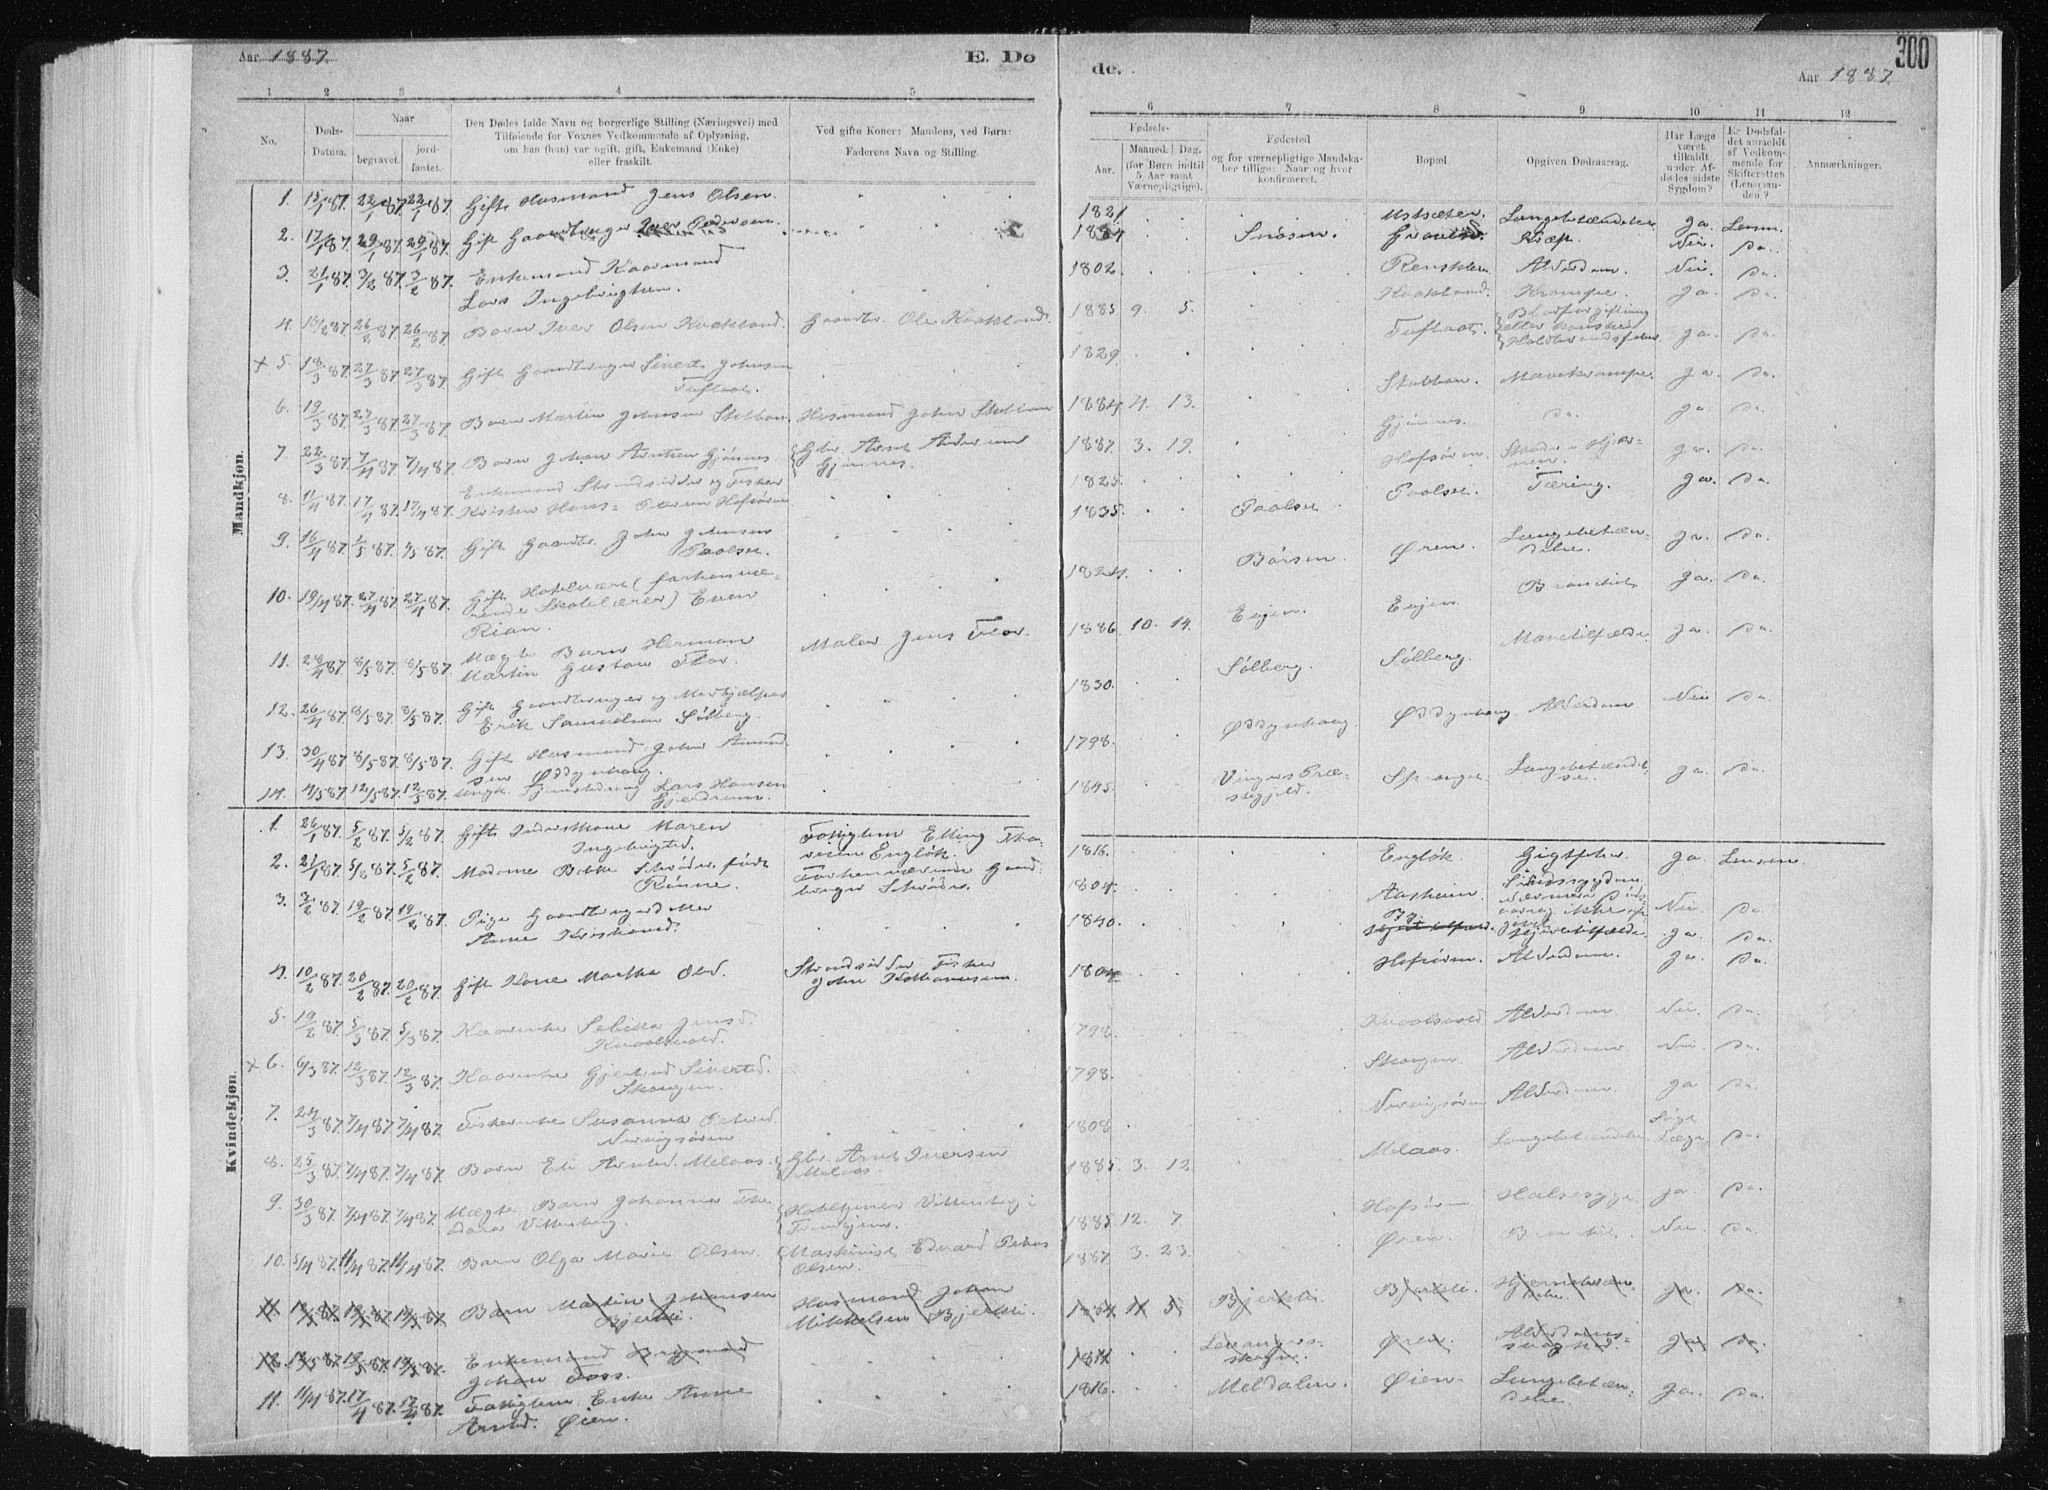 Aar 1887.
E. Dø
de.
300
Aar 1887
1 2 3 4 5
6 7 8 9 10 11 12
No.
Døds-
Datum.
Naar
begravet.
jord-
fæstet.
Den Dødes fulde Navn og borgerlige Stilling (Næringsvei) med
Tilføiende for Voxnes Vedkommende af Oplysning,
om han (hun) var ugift, gift, Enkemand (Enke)
eller fraskilt.
Ved gifte Koner: Mandens, ved Børn:
Faderens Navn og Stilling.
Fødsels-
Aar.
Maaned.
Dag.
(for Børn indtil
5 Aar samt
Værnepligtige).
Fødested
og for værnepligtige Mandska-
ber tillige: Naar og hvor
konfirmeret.
Bopæl.
Opgiven Dødsaarsag.
Har Læge
været
tilkaldt
under Af-
dødes sidste
Sygdom?
Er Dødsfal-
det anmeldt
af Vedkom-
mende for
Skifteretten
(Lensman-
den)?
Anmærkninger.
Mandkjøn.
1. 15/1 87. 22/1 87. 22/1 87. Gift Husmand Jens Olsen. 1821 Lungebetændelse Ja. Lensm.
2. 17/1 87. 29/1 87. 29/1 87. Gift Gaardbruger Snåsen. Kræft. Nei. Do.
3. 21/1 87. 3/2 87. 3/2 87. Enkemand Kaarmand
Lars Ingebrigtsen. 1802. Alderdom. Nei. Do.
4. 16/2 87. 26/2 87. 26/2 87. Barn Iver Olsen Kaakland. Gaardbr. Ole Kaakland. 1885 9. 5. Kaakland. Krampe. Ja. Do.
+ 5. 18/3 87. 27/3 87. 27/3 87. Gift Gaardbruger Sivert Johnsen
Tuflaat. 1829. Tuflaat. Blodforgiftning
eller kanske
Koldbrandsfeber Ja. Do.
6. 19/3 87. 27/3 87. 27/3 87. Barn Martin Johnsen Stubban. Husmand John Stubban 1884 4. 13. Stubban. Mavekrampe. Ja. Do.
7. 22/3 87. 7/4 87. 7/4 87. Barn Johan Arntsen Gjønnes Gbr. Arnt Andersen
Gjønnes. 1887. 3. 19. Gjønnes. Do. Ja. Do.
8. 11/4 87. 17/4 87. 17/4 87. Enkemand Strandsidder og Fisker
Kristen Hans- Hofsøren 1825. Hofsøren. Ja. Do.
9. 16/4 87. 1/5 87. 1/5 87. Gift Gaardbr. John Johnsen
Paalset. 1835. Paalset Paalset. Tæring. Ja. Do.
10. 19/4 87. 27/4 87. 27/4 87. Gift Hotelvært (forhenvæ-
rende Skolelærer) Even
Rian. 1824. Børsen. Øren. Lungebetæn-
delse. Ja. Do.
11. 28/4 87. 8/5 87. 8/5 87. Uægte Barn Herman
Martin Gustav Flor. Maler Jens Flor. 1886 10. 14. Evjen. Evjen. Bronchit Ja. Do.
12. 26/4 87. 8/5 87. 8/5 87. Gift Gaardbruger og Medhjælper
Erik Samuelsen Sølberg. 1830. Sølberg. Sølberg. Mavetilfælde Ja. Do.
13. 30/4 87. 8/5 87. 8/5 87. Gift Husmand John Amund-
sen Øddynhaug. 1798. Øddynhaug. Øddynhaug. Alderdom Nei Do.
14. 4/5 87. 12/5 87. 12/5 87. Ungk. Tjenestedreng Lars Hansen
Gjerdrum. 1845. Vingers Præ-
stegjeld. Lungebetændel-
se. Ja. Do.
Kvindekjøn.
1. 26/1 87. 5/2 87. 5/2 87. Gift Maren
Ingebrigtsd. Fattiglem Elling
Engløk. 1816. Engløk. Gigtfeber. Ja. Lensm.
2. 21/1 87. 5/2 87. 5/2 87. Madame Schrøder født
Rønne. Forhenværende Gaard-
bruger Schrøder. 1804. Aasheim. Sindssygdom Nei. Do.
3. 3/2 87. 19/2 87. 19/2 87. Pige Gaardbrugerdatter
Anne 1840. Hjertetilfælde. Ja. Do.
4. 10/2 87. 20/2 87. 20/2 87. Gift Kone Martha Olsd. Strandsidder Fisker
John 1804 Hofsøren. Alderdom. Ja. Do.
5. 19/2 87. 5/3 87. 5/3 87. Kaarenke Jensd.
Kuvolsvold. 1798. Kuvolsvold Alderdom. Nei. Do.
+ 6. 6/3 87. 12/3 87. 12/3 87. Kaarenke Gjertrud Sivertsd.
Skaugen. 1798. Skaugen. Alderdom. Nei. Do.
7. 24/3 87. 7/4 87. 7/4 87. Fiskerenke Susanna
Nervigsøren. 1808. Nervigsøren Alderdom. Ja Do.
8. 25/3 87. 7/4 87. 7/4 87. Barn Eli Arntsd. Melaas. Gbr. Arnt Iversen
Melaas. 1885. 3. 12. Melaas. Lungebetændelse Søgt
Læge. Do.
9. 30/3 87. 7/4 87. 7/4 87. Uægte Barn Johanna Theo-
dora Vittenberg. Vittenberg i
Trondhjem. 1885 12. 7. Hofsøren Halssyge. Ja. Do.
10. 5/4 87. 11/4 87. 11/4 87. Barn Olga Marie Olsen. Maskinist Edvard Petrus
Olsen. 1887. 3. 23. Øren. Bronchit. Nei. Do.
11. Barn Martin Johansen
Bjerkli. Husmand Johan
Mikkelsen Bjerkli. 1884 11 5. Bjerkli. Bjerkli. Hjernebetæn-
delse. Ja. Do.
12. Enkemand
Johan Foss. 1811 Levanger-
skogn. Øren. Alderdoms-
svaghed. Ja. Do.
11. 11/4 87. 17/4 87. 17/4 87. Fattiglem Enke Anne
Arntsd. Øien. 1816. Meldalen. Øien. Lungebetæn-
delse. Ja. Do.